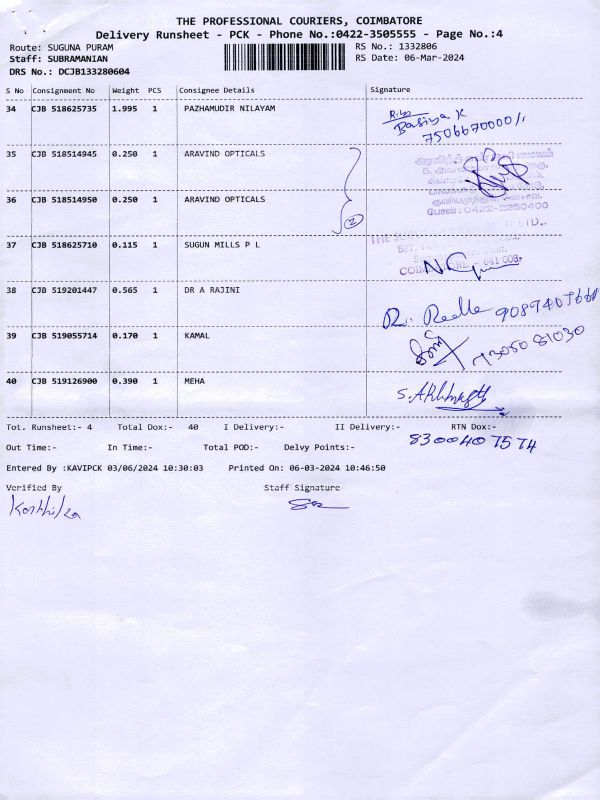 THE PROFESSIONAL COURIERS, COIMBATORE
Delivery Runsheet - PCK - Phone No.:0422-3505555 - Page No.:4
Route: SUGUNA PURAM RS No.: 1332806
Staff: SUBRAMANIAN RS Date: 06-Mar-2024
DRS No.: DCJB133280604
S No Consignment No Weight PCS Consignee Details Signature
34 CJB 518625735 1.995 1 PAZHAMUDIR NILAYAM
7506670000/1
35 CJB 518514945 0.250 1 ARAVIND OPTICALS
36 CJB 518514950 0.250 1 ARAVIND OPTICALS
2
போன்: 0422-2250400
37 CJB 518625710 0.115 1 SUGUN MILLS P L
38 CJB 519201447 0.565 1 DR A RAJINI
39 CJB 519055714 0.170 1 KAMAL
73050 81030
40 CJB 519126900 0.390 1 MEHA
Tot. Runsheet:- 4 Total Dox:- 40 I Delivery:- II Delivery:- RTN Dox:-
8300407574
Out Time:- In Time:- Total POD:- Delvy Points:-
Entered By :KAVIPCK 03/06/2024 10:30:03 Printed On: 06-03-2024 10:46:50
Verified By Staff Signature